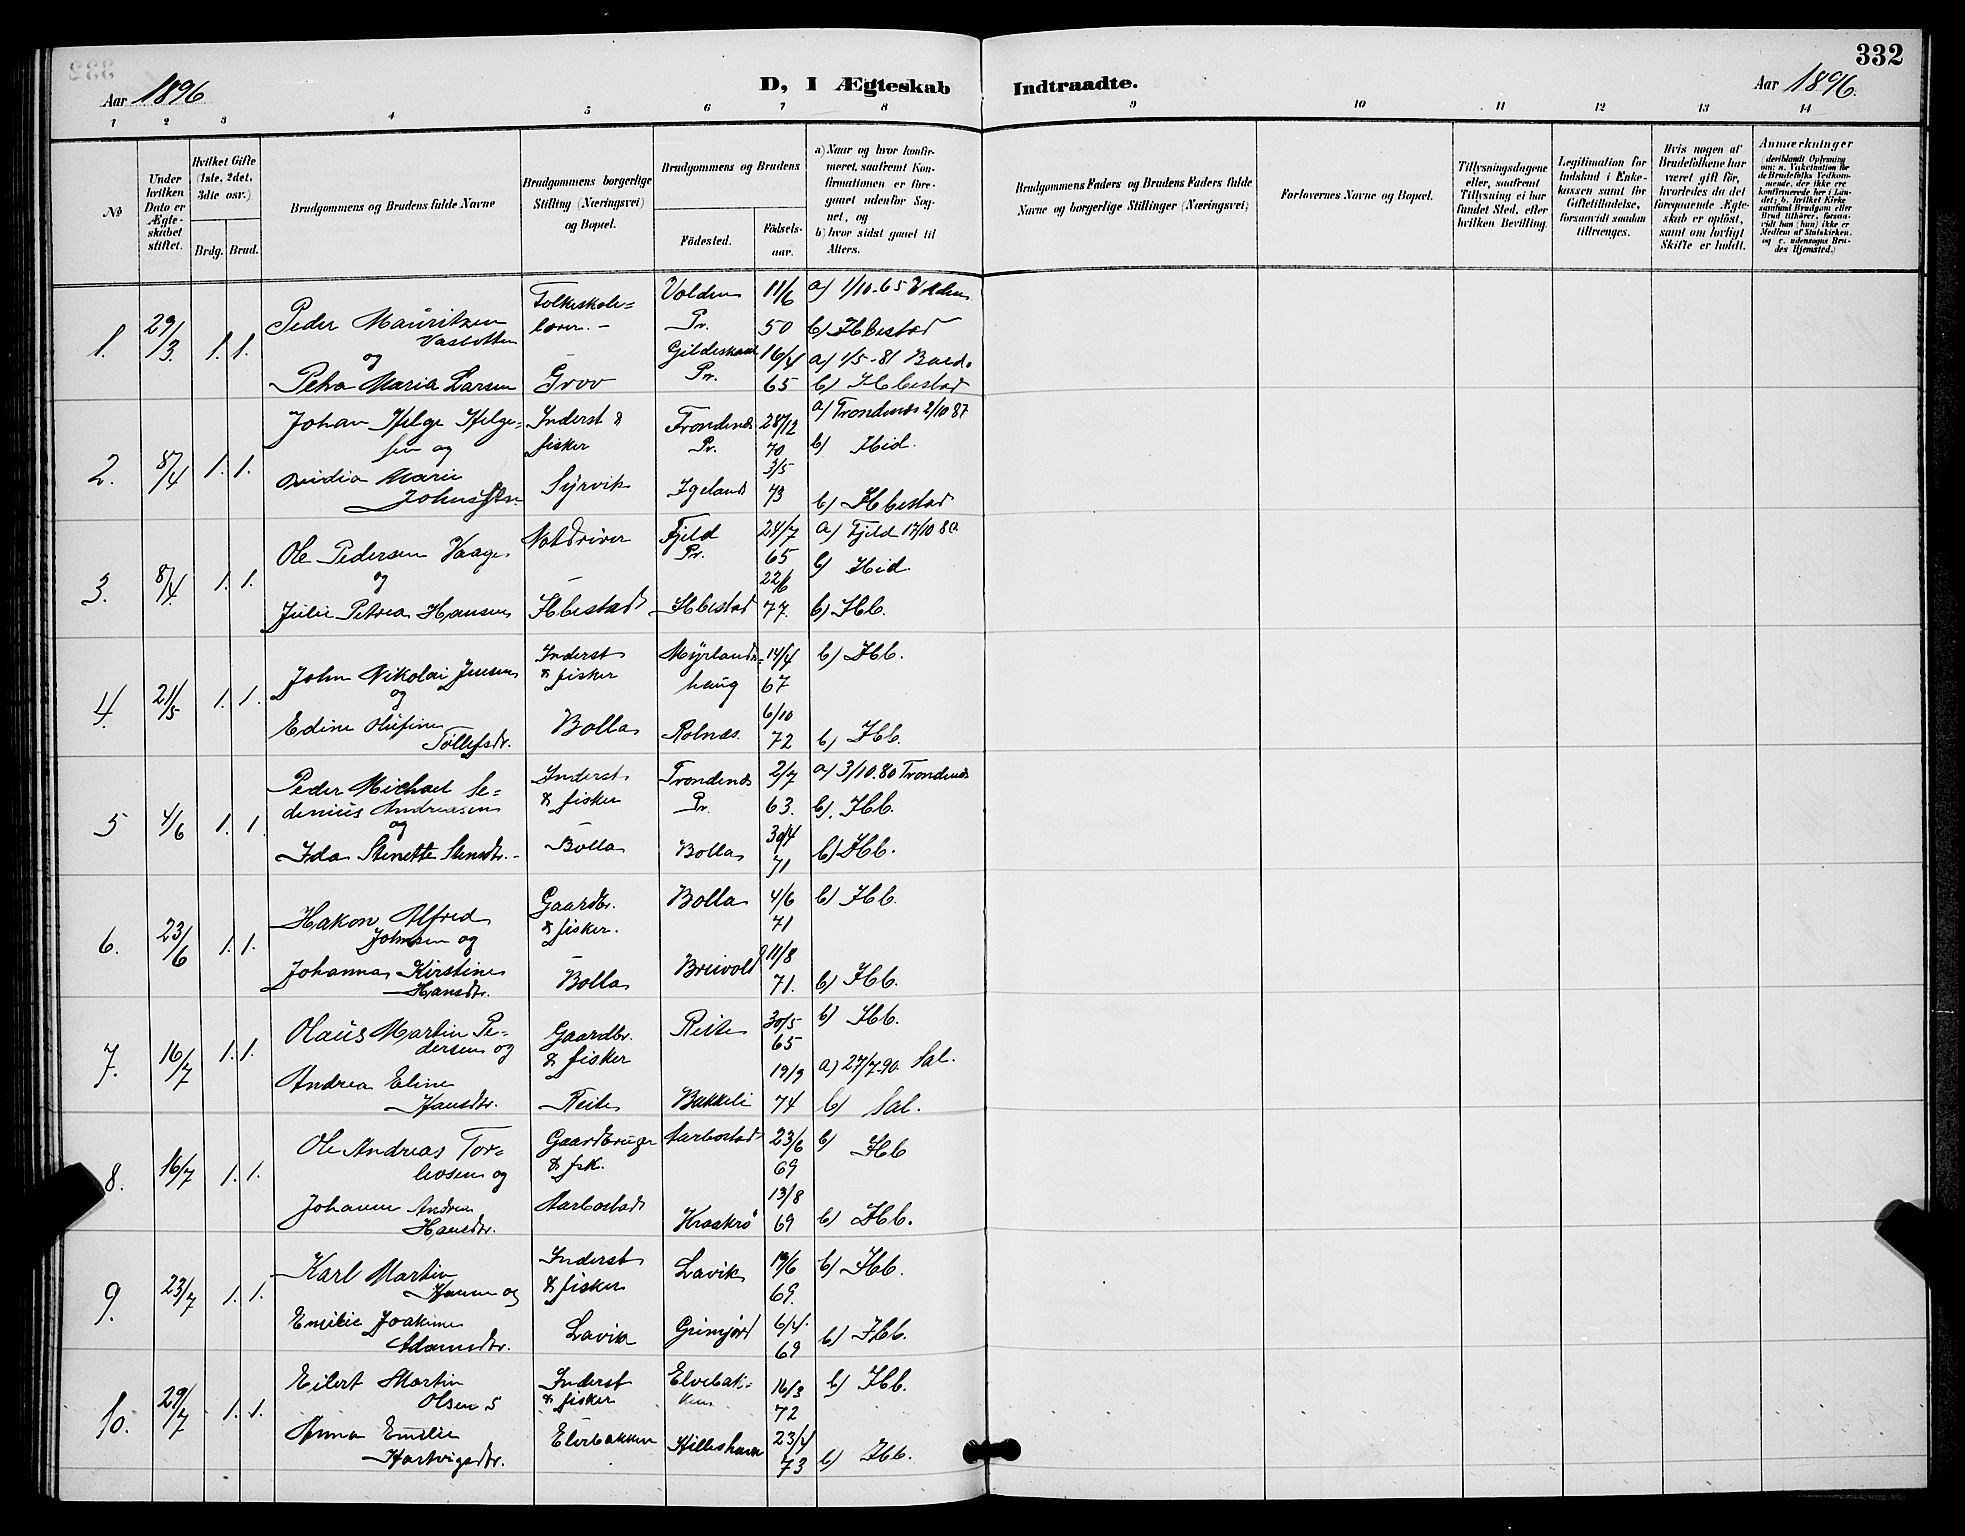 332
Aar 1896
D, I Ægteskab Indtraadte.
Aar 1896.
1 2 3 4 5 6 7 8 9 10 11 12 13 14
No
Under hvilken Dato er Ægteskabet stiftet.
Hvilket Gifte (1ste, 2det, 3die osv.)
Brdg. Brud.
Brudgommens og Brudens fulde Navne
Brudgommens borgerlige Stilling (Næringsvei) og Bopæl.
Brudgommens og Brudens
Fødested.
Fødsels-aar.
a) Naar og hvor konfir-
meret, saafremt Kon-
firmationen er fore-
gaaet udenfor Sog-
net, og
b) hvor sidst gaaet til
Alters.
Brudgommens Faders og Brudens Faders fulde
Navne og borgerlige Stillinger (Næringsvei)
Forlovernes Navne og Bopæl.
Tillysningsdagene
eller, saafremt
Tillysning ei har
fundet Sted, efter
hvilken Bevilling.
Legitimation for
Indskud i Enke-
kassen samt for
Giftetilladelse,
forsaavidt saadan
tiltrænges.
Hvis nogen af
Brudefolkene har
været gift før,
hvorledes da det
foregaaende Ægte-
skab er opløst,
samt om lovligt
Skifte er holdt.
Anmærkninger
(deriblandt Oplysning
om: a. Vakcination for
de Brudefolks Vedkom-
mende, der ikke ere
konfirmerede her i Lan-
det; b. hvilket Kirke
samfund Brudgom eller
Brud tilhører, forsaa-
vidt han (hun) ikke er
Medlem af Statskirken,
og c. udensogns Bru-
des Hjemsted.)
1. 29/3 1. 1. Peder Mauritzen Folkeskole- Volden 11/6 a) 1/10-65
lærer. Pr. 50 b) Ibestad
og Gildeskaal 16/4 a) 1/5-81
Petra Maria Larsen Grov Pr. 65 b) Ibestad
2. 8/4 1. 1. Johan Helge Helge- Inderst & Trondenæs 28/12 a) Trondenæs 2/10 87
sen og fisker Pr. 70 b) Ibid.
Marie Syrvik Igeland 3/5 73 b) Ibestad
3. 8/4 1. 1. Ole Pedersen Vaage Notdriver Fjeld 24/7 a) Fjeld 17/10 80
og Pr. 65 b) Ibid.
Julie Petrea Hansen Ibestad Ibestad 22/6 77. b) Ibb.
4. 21/5 1. 1. John Nikolai Jensen Inderst Myrlands- 14/4 b) Ibb.
og & fisker haug 67
Edine Olufine Bolla Rolnæs. 6/10
Tollefsdr. 72 b) Ibb.
5 4/6 1. 1. Peder Michael Se- Inderst Trondenæs 2/7 a) 3/10.80 Trondenæs
denius Andreasen & fisker Pr. 63. b). Ibb.
og
Ida Stenette Stensdr. Bolla Bolla 30/4 71 b) Ibb.
6. 23/6 1. 1. Hakon Alfred Gaardbr. Bolla 4/6 b) Ibb.
Johnsen og & fisker. 71
Johanna Kirstine Bolla Breivold 11/8
Hansdr. 71. b) Ibb.
7. 16/7 1. 1. Olaus Martin Pe- Gaardbr. Reite 30/5 b) Ibb.
dersen og & fisker 65
Andrea Eline 19/9 a) 27/7-90. Sal.
Hansdr. Reite Bakkeli 74 b) Sal.
8. 16/7 1. 1. Ole Andreas Tor- Gaardbruger Aarbostad 23/6 b) Ibb
levsen og & fsk. 69
Johanna Andrea Aarbostad 13/8
Hansdr. Kraakrø 69 b) Ibb.
9. 23/7 1. 1. Karl Martin Inderst Lavik b) Ibb.
Hansen og & fisker 69.
Emilie Joakime Lavik Grimjord 6/4.
Adamsdr. 69 b) Ibb.
10. 29/7 1. 1. Eilert Martin Inderst Elvebak- 16/3 b) Ibb.
Olsen & fisker ken 72
Anna Emilie Elvebakken Hilleshavn 23/4
Hartvigsdr. 73 b) Ibb.